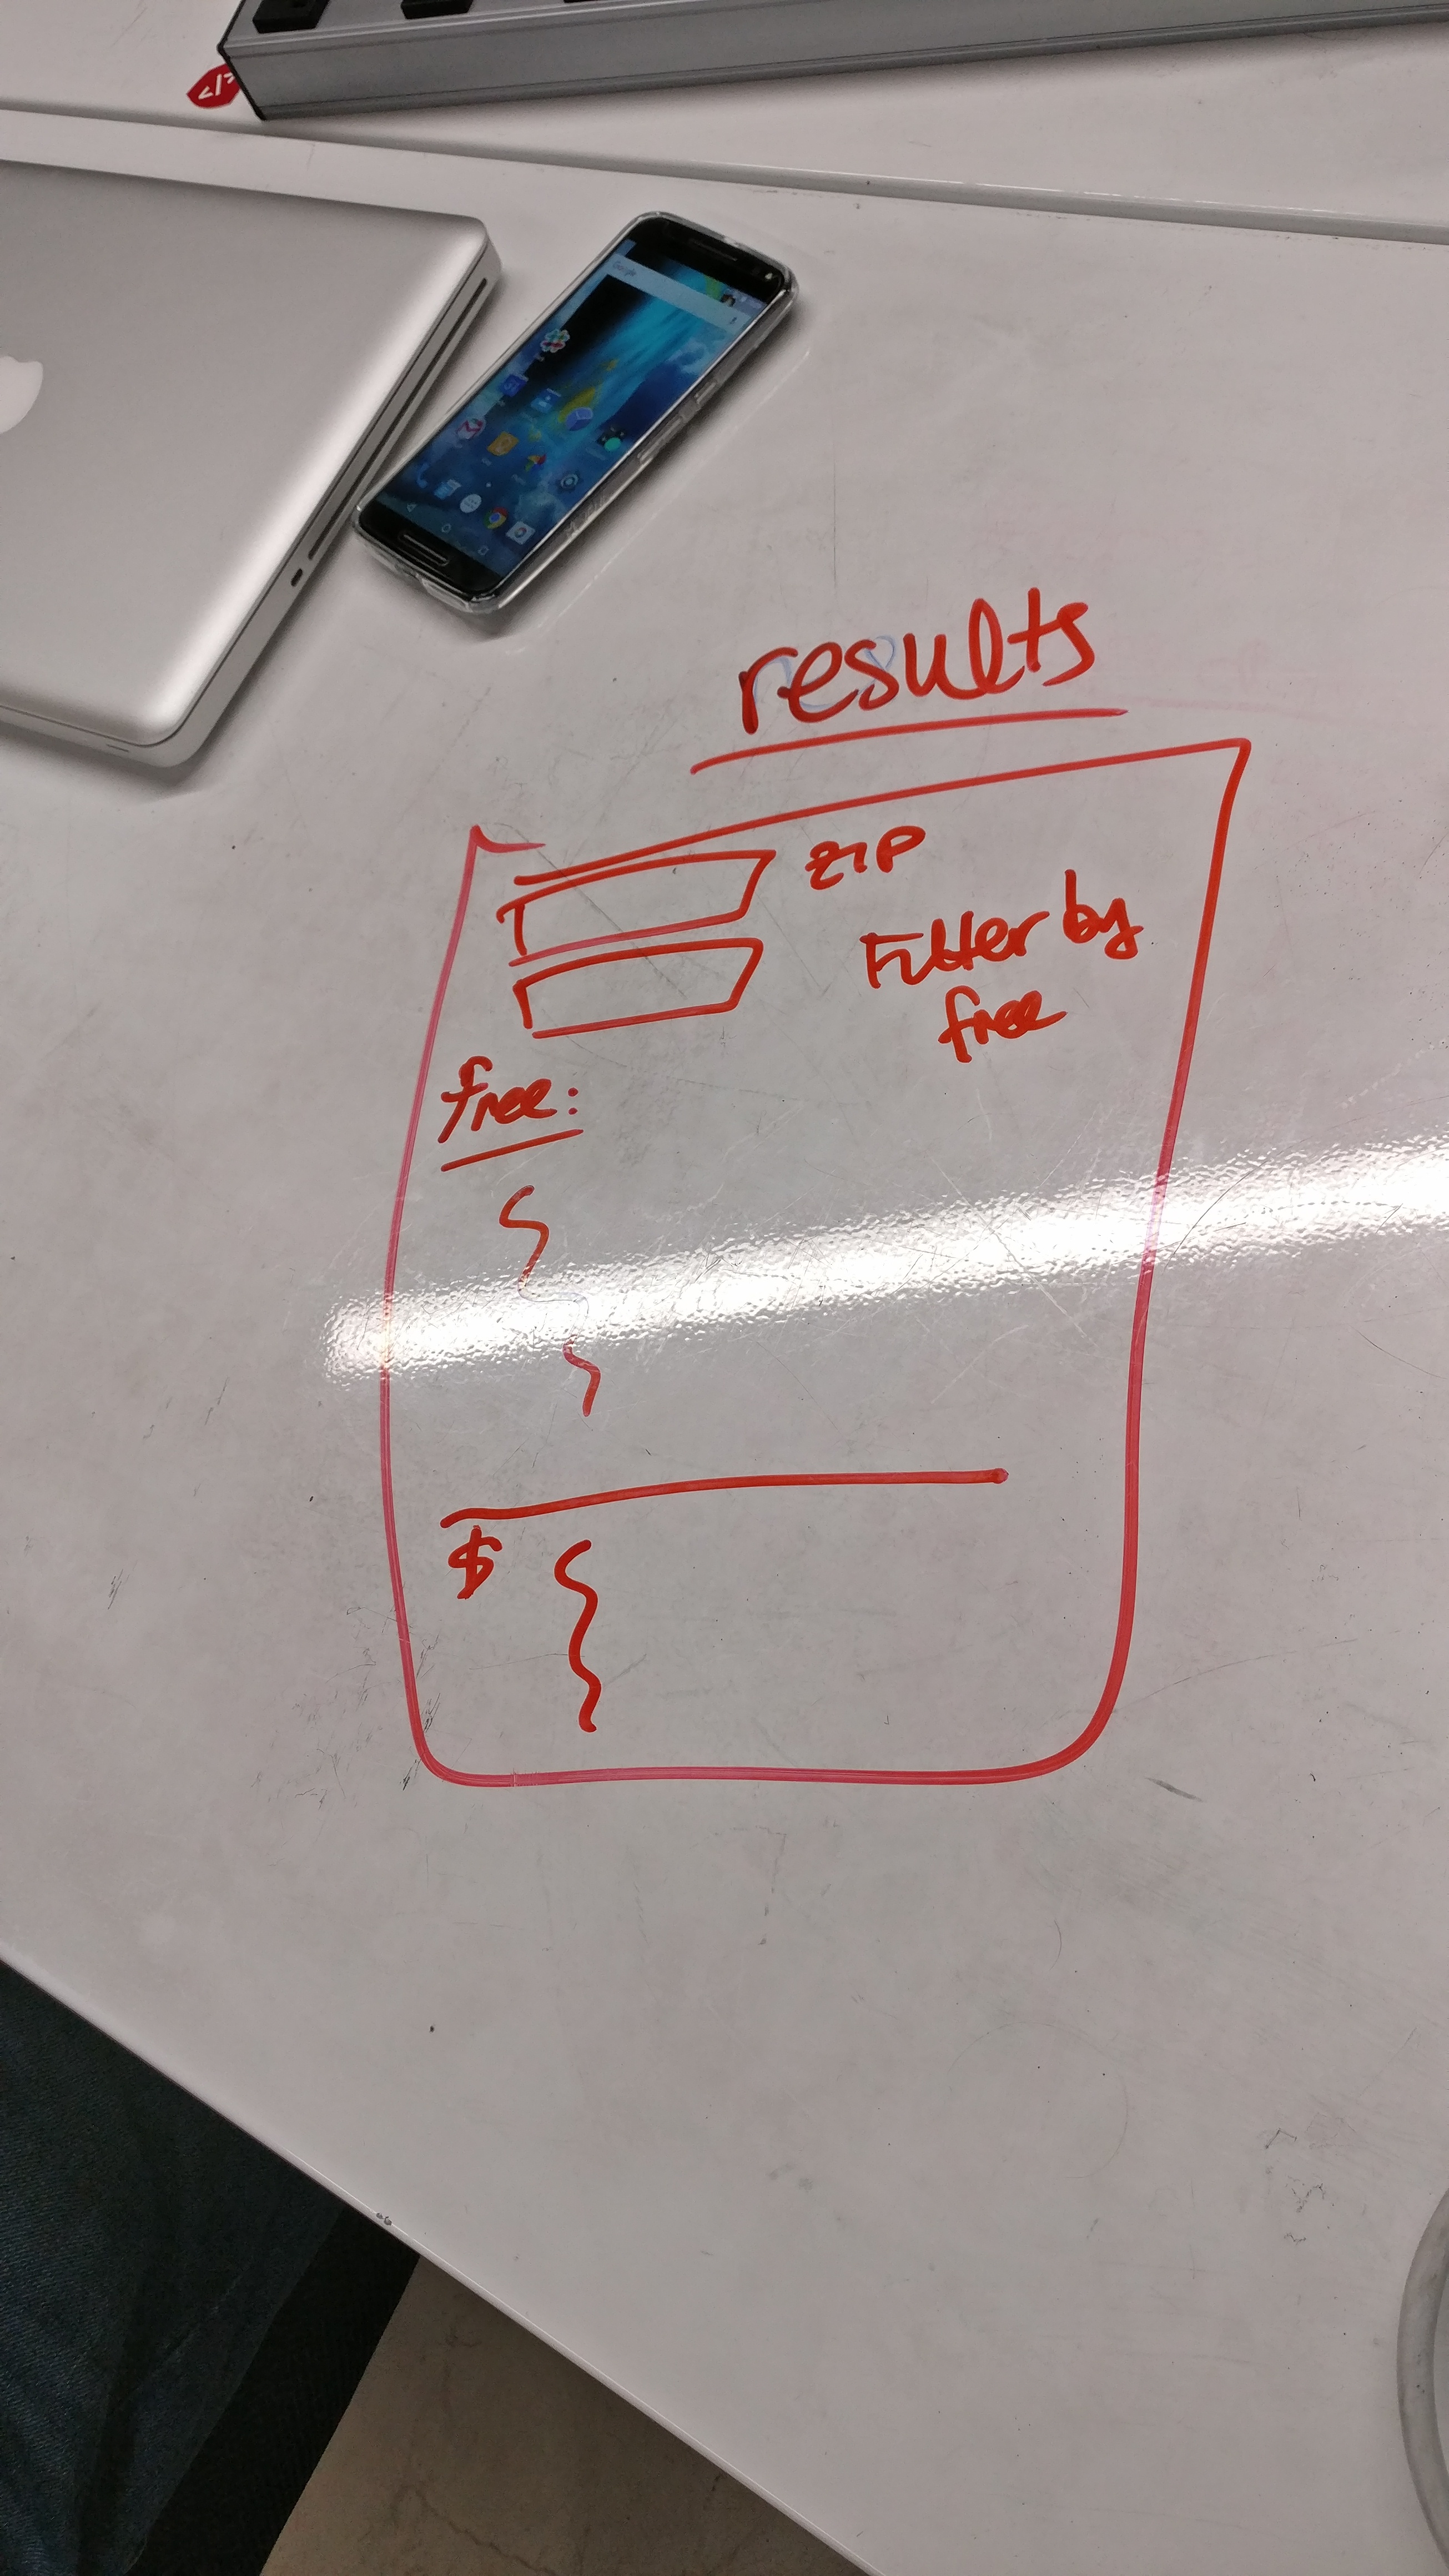 </>
Google
results
ZIP
Filter by
free
free:
$